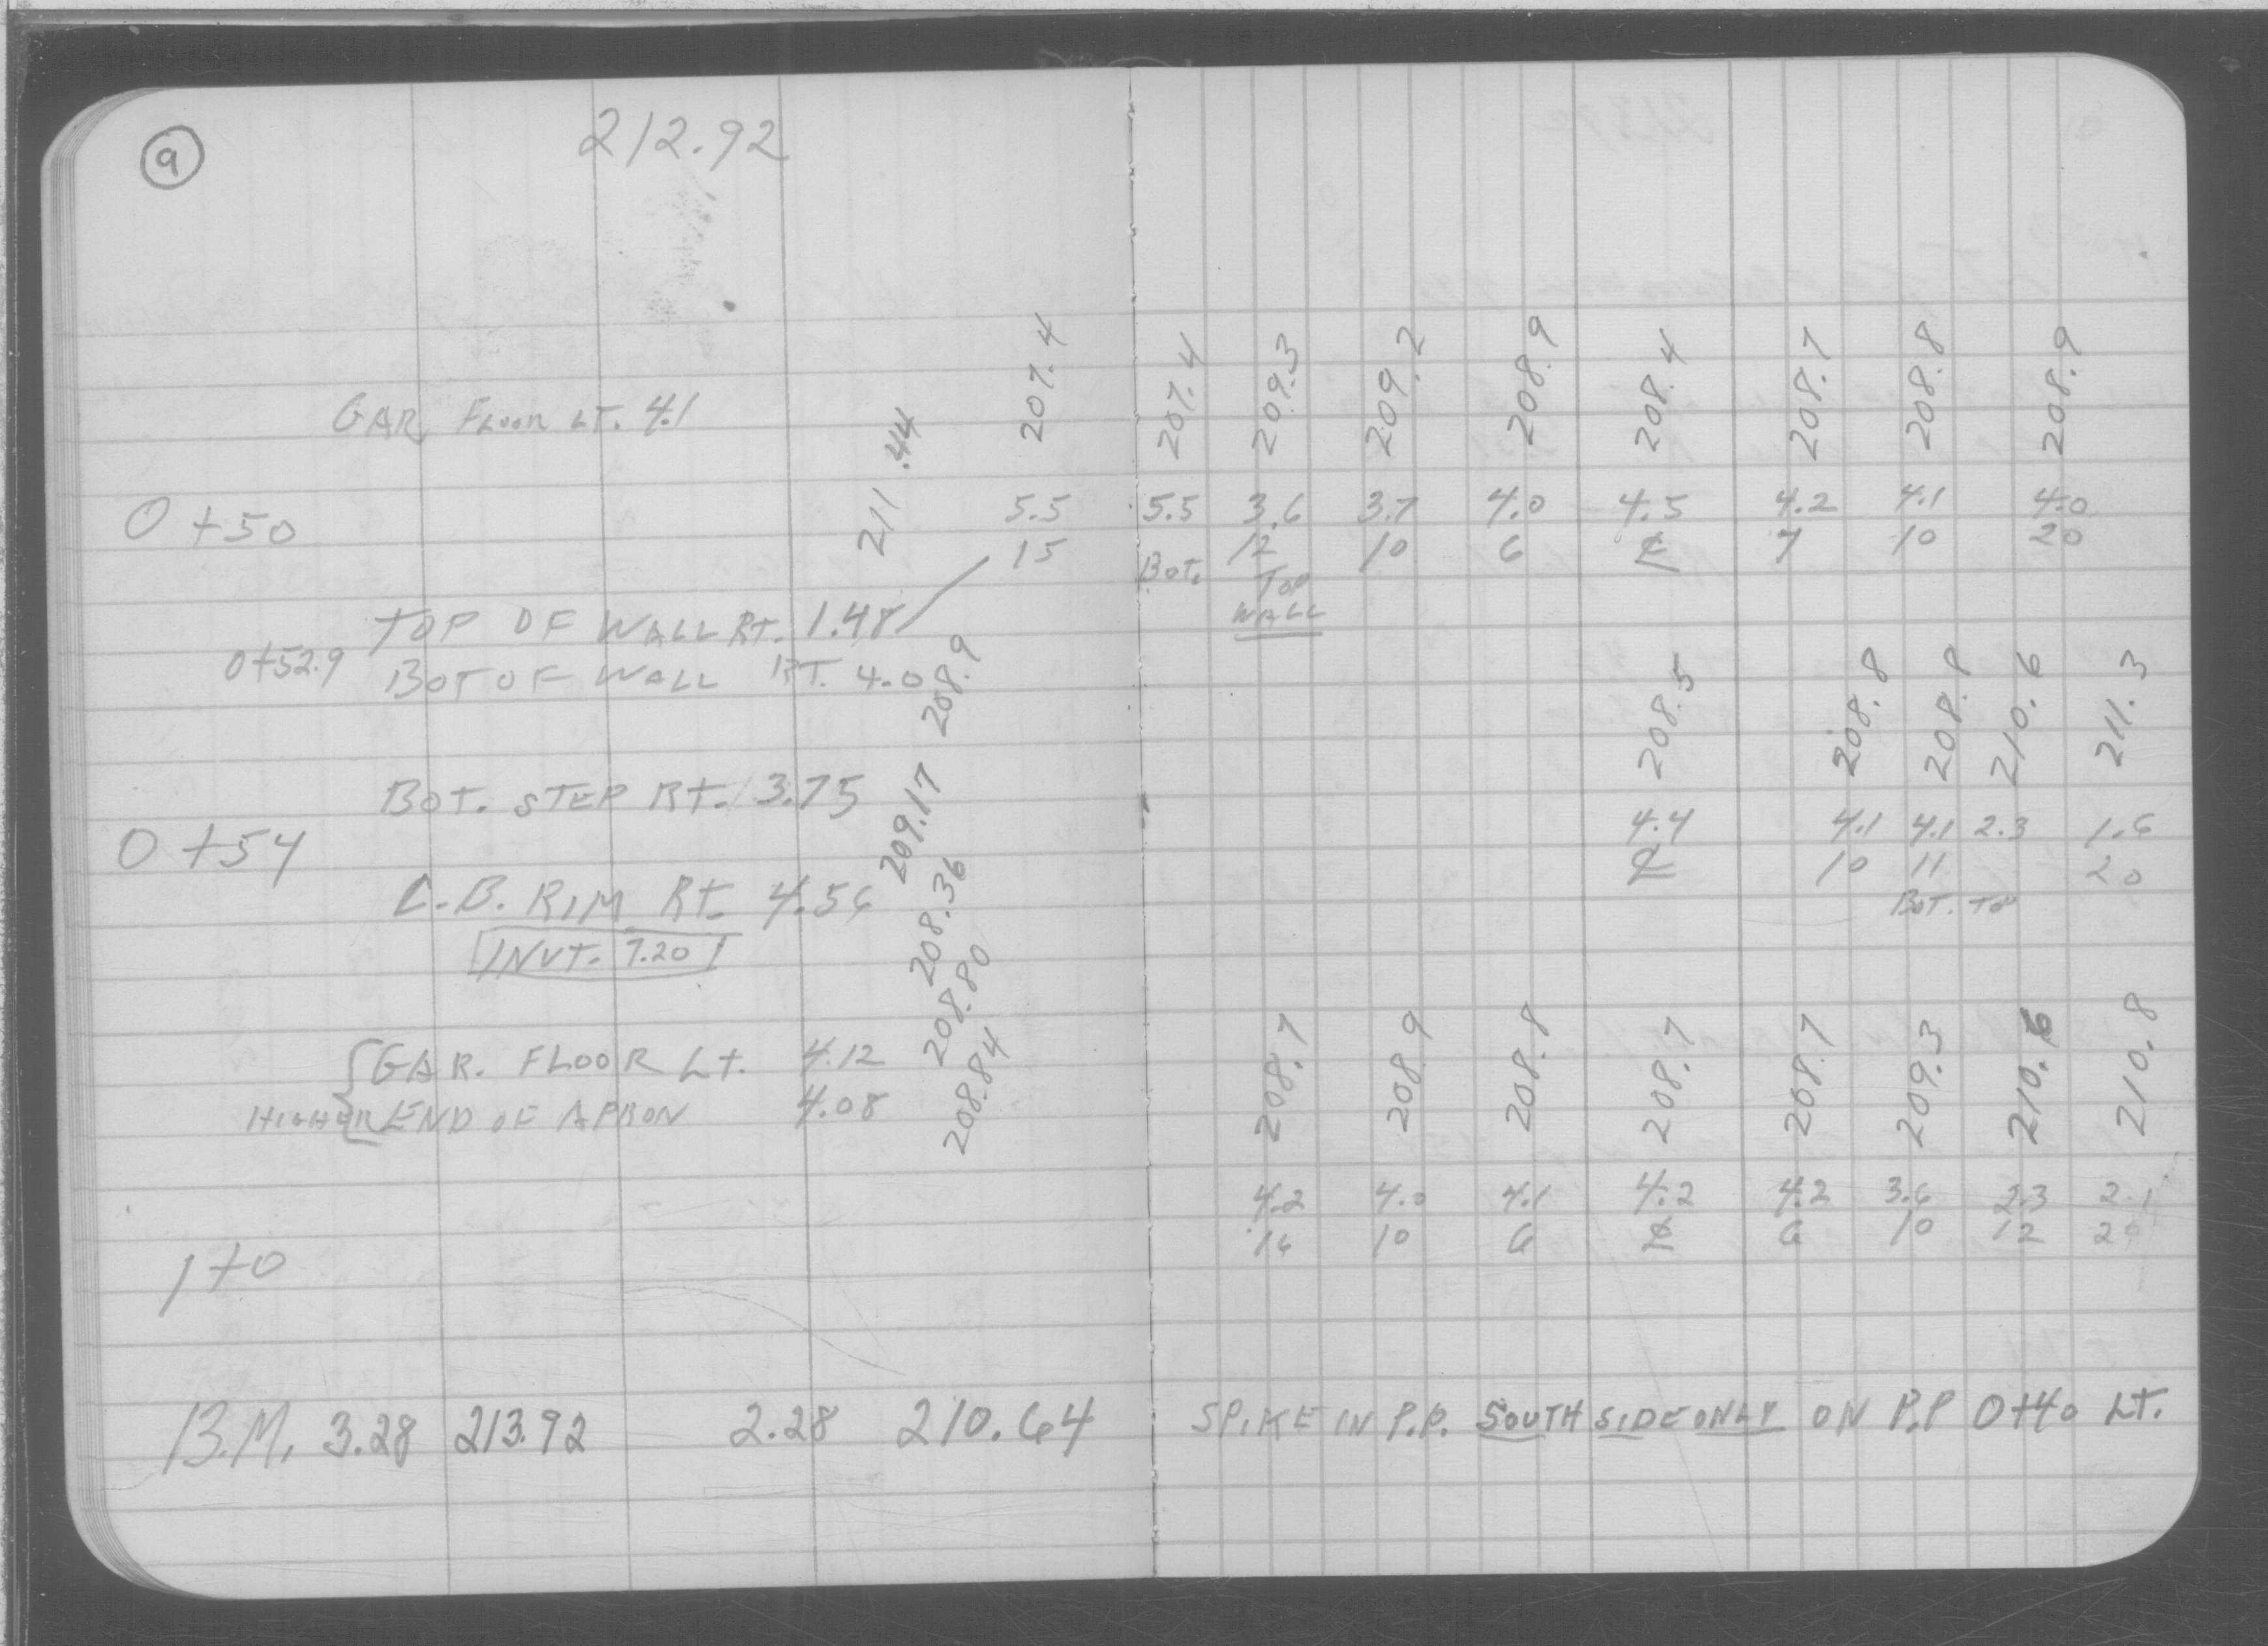 9
212.92
207.4 207.4 209.3 209.2 208.9 208.4 208.7 208.8 208.9
GAR. FLOOR LT. 4.1
211.44
0+50 5.5 5.5 3.6 3.7 4.0 4.5 4.2 4.1 4.0
15 BOT. 12 10 6 ℄ 7 10 20
TOP
WALL
TOP OF WALL RT. 1.48
0+52.9 BOT OF WALL RT. 4.0 208.9
208.5 208.8 208.8 210.6 211.3
BOT. STEP RT. 3.75 209.17
0+54 4.4 4.1 4.1 2.3 1.6
℄ 10 11 20
BOT. TOP
C.B. RIM RT. 4.56 208.36
INVT. 7.20
208.7 208.9 208.8 208.7 208.7 209.3 210.6 210.8
GAR. FLOOR LT. 4.12 208.80
HIGHER END OF APRON 4.08 208.84
4.2 4.0 4.1 4.2 4.2 3.6 2.3 2.1
1+0 16 10 6 ℄ 6 10 12 20
B.M. 3.28 213.92 2.28 210.64 SPIKE IN P.P. SOUTH SIDE ONLY ON P.P 0+40 LT.